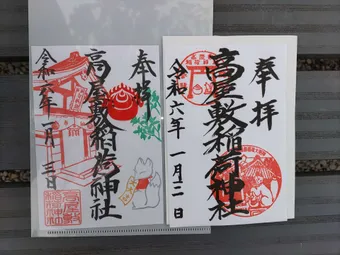 奉拝
高屋敷稲荷神社
令和六年 一月二日
奉拝
高屋敷稲荷神社
令和六年 一月二日